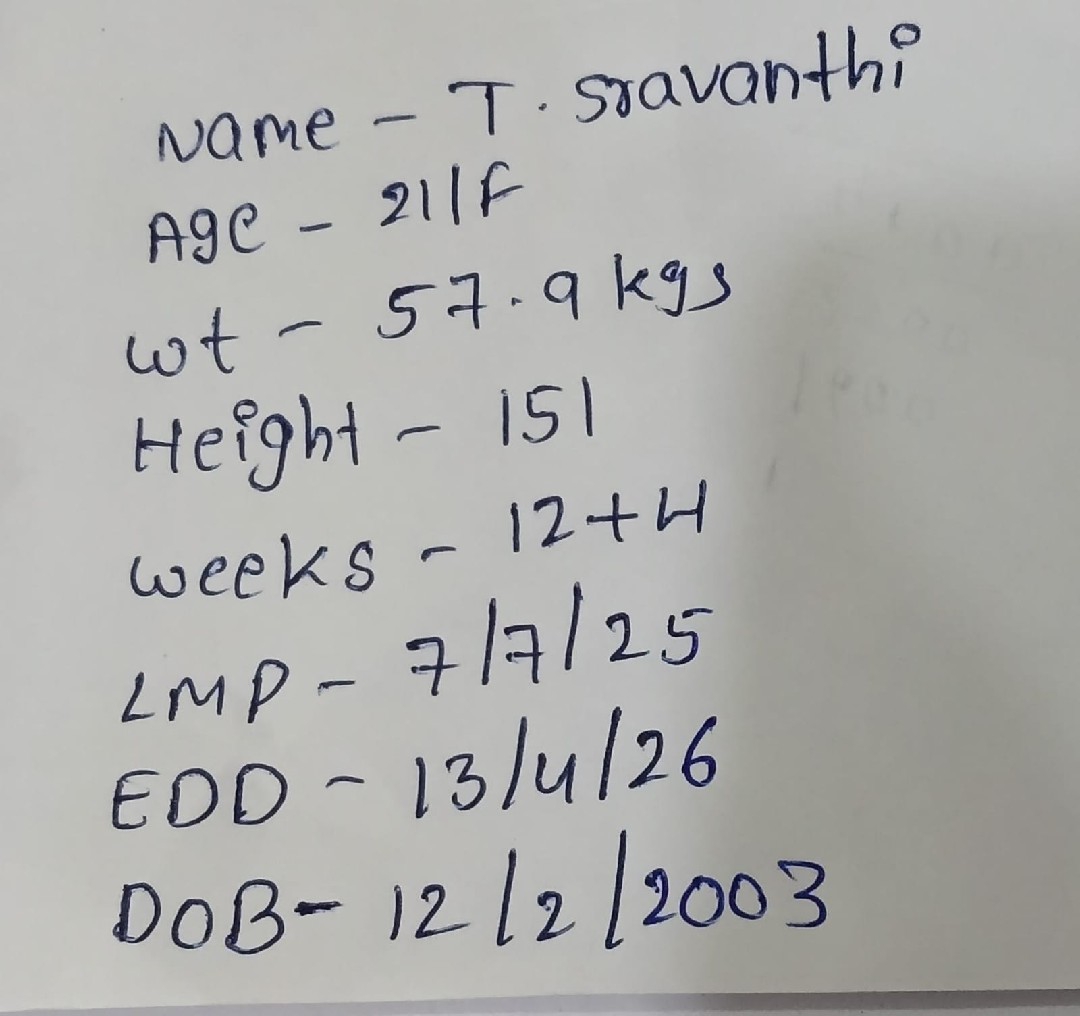 Name - T. Sravanthi
Age - 21/F
wt - 57.9 kgs
Height - 151
weeks - 12+4
LMP - 7/7/25
EDD - 13/4/26
DOB- 12/2/2003